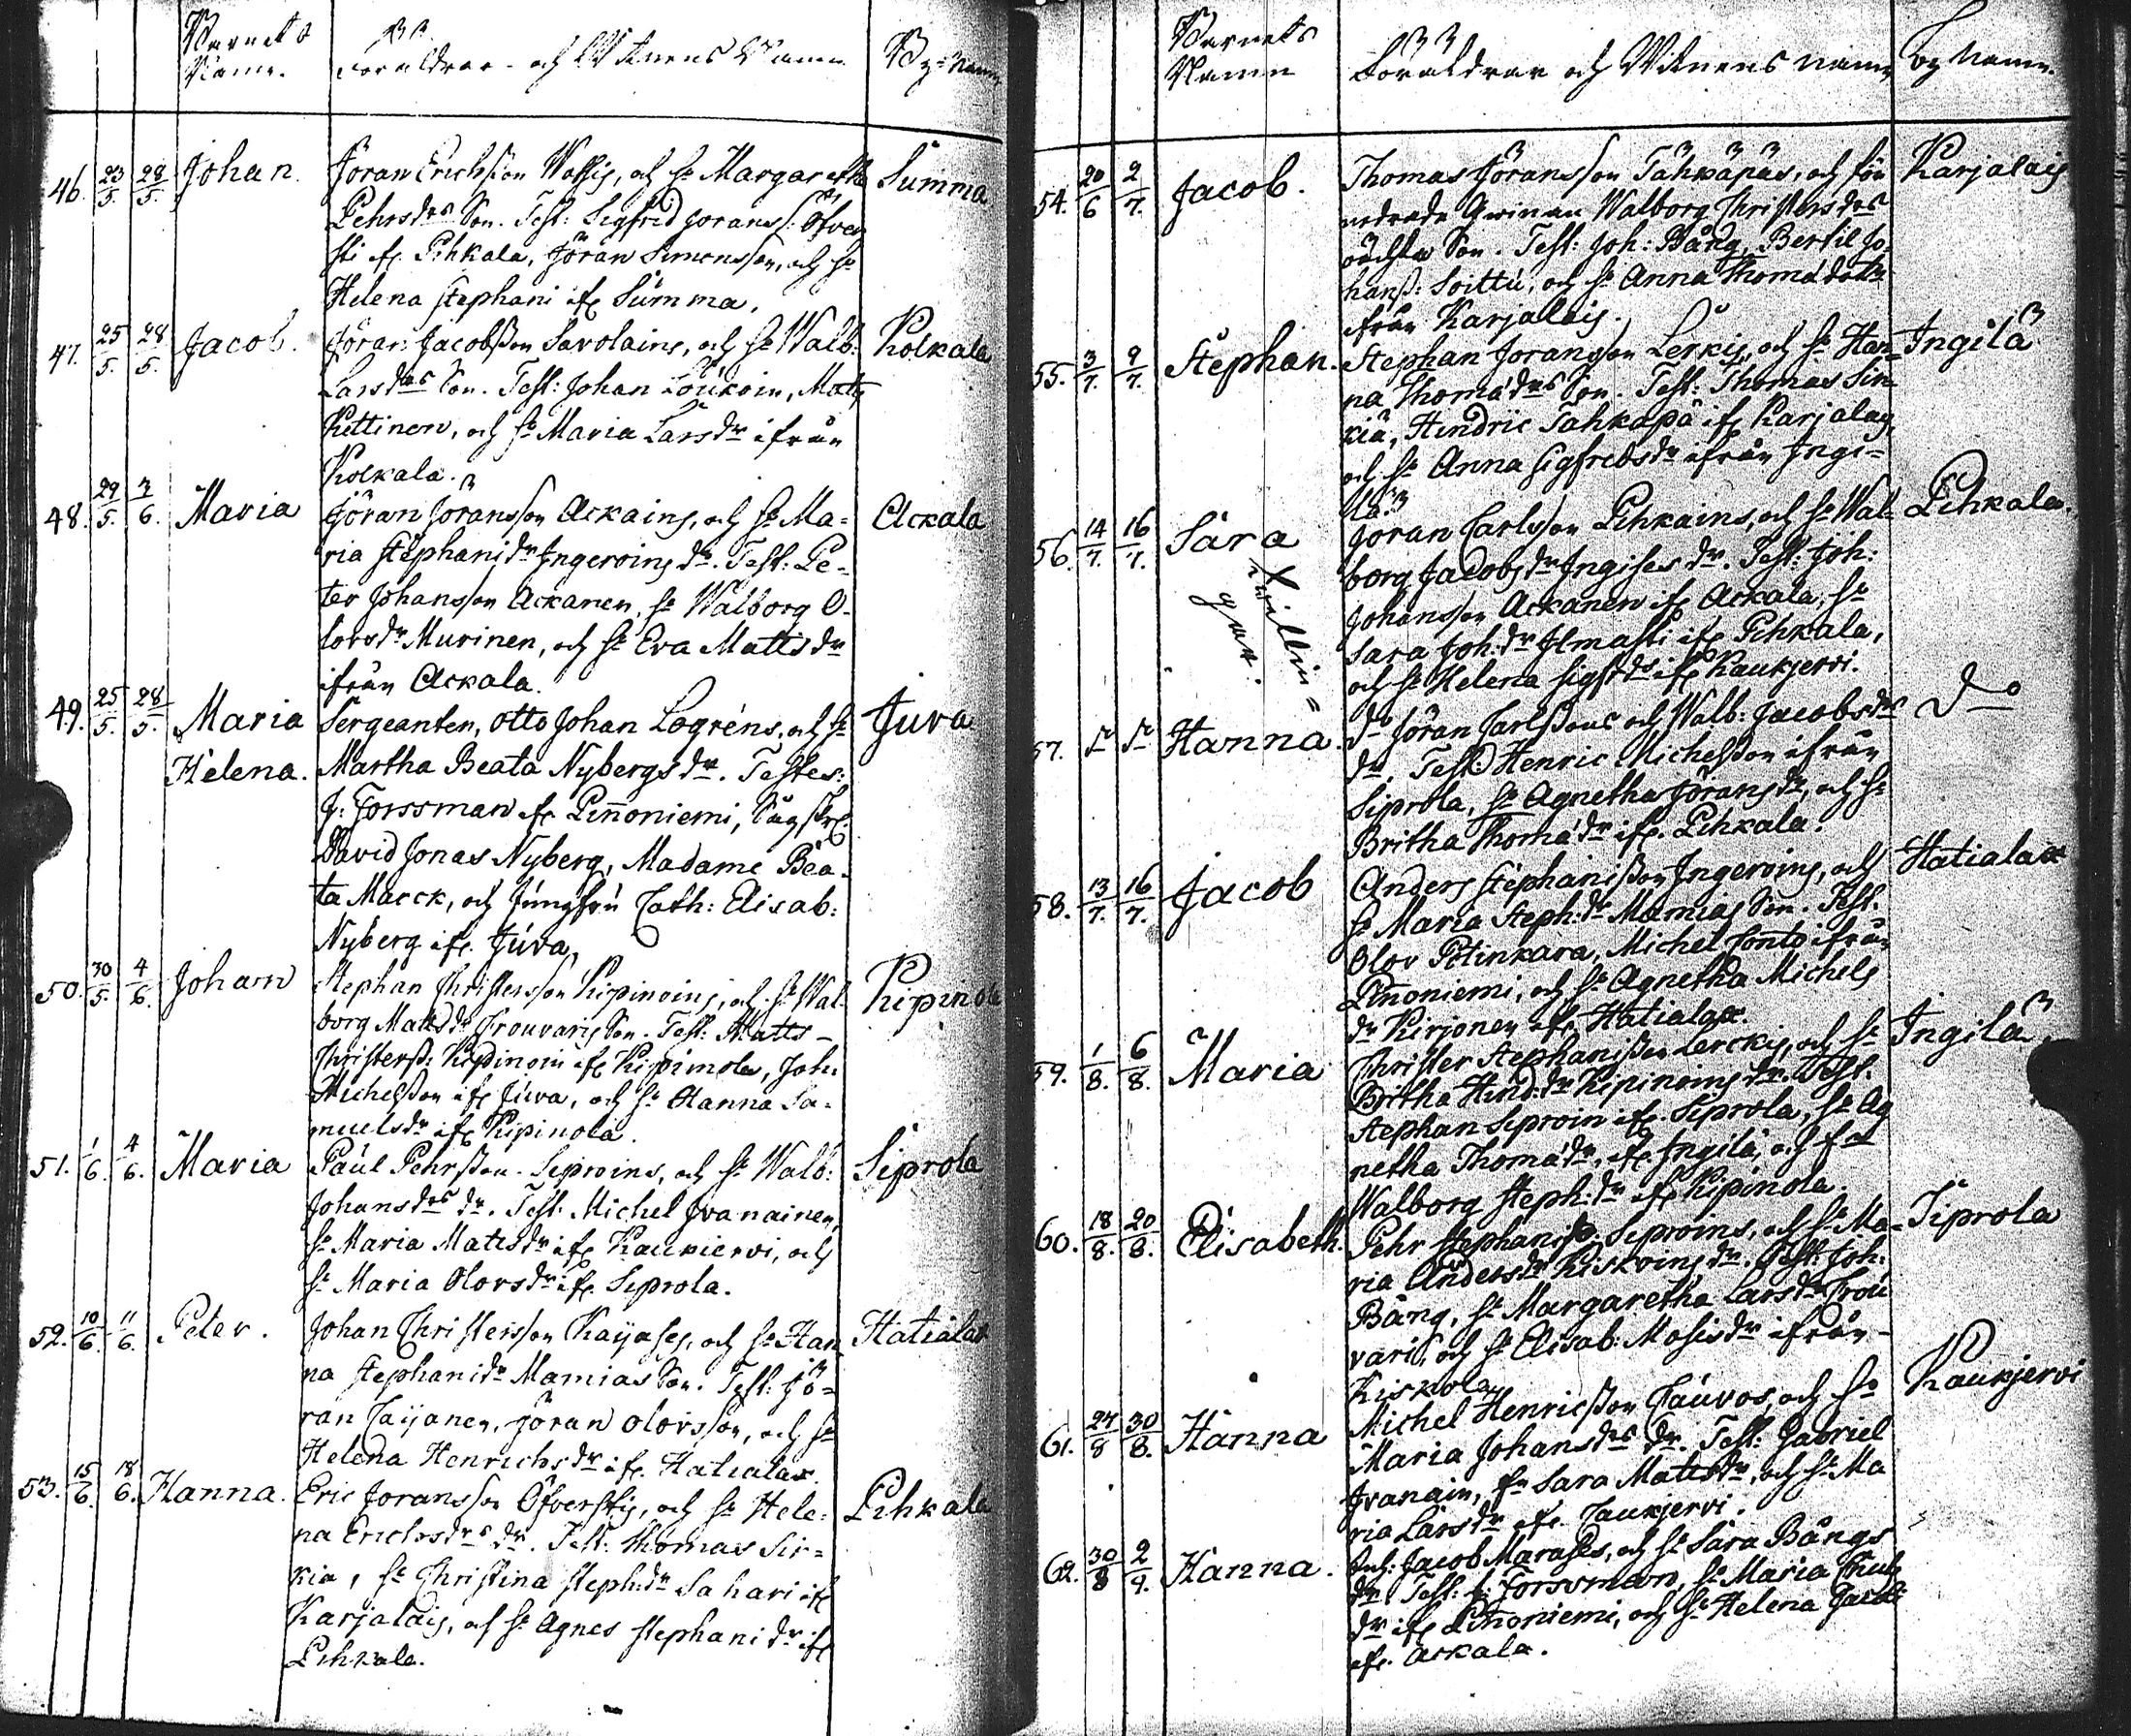 Barnets
Namn.
Föräldrar- och Witnens Namn
By-Namn
46. 23/5. 28/5. Johan. Jöran Erichsson Wassig, och h: Margaretha Summa
Pehrsdrs Son. Test: Sigfred Jöranss: Öfver
sti ifr. Pihkala, Jöran Simonsson, och h:
Helena Stephani ifr Summa.
47. 25/5. 28/5. Jacob. Jöran Jacobsson Savolains, och h: Walb: Kolkala
Larsdrs Son. Test: Johan Loukoin, Matts
Kettinen, och h: Maria Larsdr ifrån
Kolkala.
48. 29/5. 3/6. Maria Jöran Jöransson Ackains, och h: Ma= Ackala
ria Stephanidr Ingeroins dr. Test: Pe-
ter Johansson Ackanen, h: Walborg O-
lovsdr Murinen, och h: Eva Mattsdr
ifrån Ackala.
49. 25/5. 28/5. Maria Sergeanten, Otto Johan Logréns, och h: Juva
Helena. Martha Beata Nybergs dr. Testes:
J: Forssman ifr. Linnoniemi,
David Jonas Nyberg, Madame Bea-
ta Macck, och Jungfru Cath: Elisab:
Nyberg ifr. Juva,
50. 30/5. 4/6. Johan Stephan Christersson Kipinoins, och h: Wal- Kipinola
borg Mattsdr Trouvaris Son. Test: Matts
Christerss: Kipinoin ifr Kipinola, Joh:
Michelsson ifr Juva, och h: Hanna Sa-
muelsdr ifr Kipinola.
51. 1/6. 4/6. Maria Paul Pehrsson Seproins, och h: Walb: Siprola
Johansdrs dr. Test: Michel Ivanainen,
h: Maria Mattsdr ifr Kaukiervi, och
h: Maria Olovsdr ifr. Seprola.
52. 10/6. 11/6. Peter. Johan Christersson Kayases, och h: Han Hatialax
na Stephanidr Mamias Son. Test: Jö-
ran Caijanen, Jöran Olovsson, och h:
Helena Henrichsdr ifr. Hatialax.
53. 15/6. 18/6. Hanna. Eric Joransson Öfverstis, och h: Hele= Pihkala
na Erichsdrs dr. Test: Thomas Sir=
kia, h: Christina Steph:dr Sahari ifr
Karjalais, och h: Agnes Stephanidr ifr
Pihkala.
Barnets
Namn
Föräldrar och Witnens namn
By Namn.
54. 20/6 2/7. Jacob. Thomas Jöransson Tähkäpäs, och Karjalais
Walborg Christersdrs
Son. Test: Joh: Bång, Bertil Jo-
hanss: Soittu, och h: Anna Thomædotter
ifrån Karjalais.
55. 3/7. 9/7. Stephan. Stephan Joransson Lerkis, och h: Han= Ingilä
na Thomædrs Son. Test: Thomas Sir=
kiä, Hindric Tahkapä ifr Karjalais,
och h: Anna Sigfredsdr ifrån Ingi=
lä.
56. 14/7. 16/7. Sara Jöran Carlsson Pihkains, och h: Wal- Pihkala.
borg Jacobsdr Ingises dr. Test: Joh:
Johansson Ackanen ifr Ackala, h:
Sara Joh:dr Ilmasti ifr Pihkala,
och h: Helena Sigfrdr ifr Kaukjervi.
Twillin=
gar.
57. Hanna. do Jöran Carlssons och Walb: Jacobsdrs do
dr. Test: Henric Michelsson ifrån
Siprola, h: Agnetha Jöransdr, och h:
Britha Thomædr ifr. Pihkala.
58. 13/7. 16/7. Jacob Anders Stephanisson Ingeroins, och Hatialax
h: Maria Steph:dr Mamias Son. Test:
Olov Pötinkara, Michel Conto ifrån
Linnoniemi, och h: Agnetha Michels
dr Kirjonen ifr Hatialax.
59. 1/8. 6/8. Maria Christer Stephanisson Lerckis, och h: Ingilä
Britha Hind:dr Kipinoins dr. Test:
Stephan Seproin ifr. Siprola, h: Ag
netha Thomædr, ifr Ingilä, och
Walborg Steph:dr ifr Kipinola.
60. 18/8. 20/8. Elisabeth. Pehr Stephaniss: Seproins, och h: Ma- Siprola
ria Andersdr Kiskoins dr. Test: Joh:
Bång, h: Margaretha Larsdr Trou
vari, och h: Elisab: Mosisdr ifrån
Kiskola.
61. 27/8 30/8. Hanna Michel Henricsson Cauvos, och h: Kaukjervi
Maria Johansdrs dr. Test: Gabriel
Ivanain, h: Sara Mattsdr, och h: Ma
ria Larsdr ifr. Caukjervi.
62. 30/8 2/9. Hanna. Jacob Marases, och h: Sara Bångs
dr. Test: J: Forssman, h: Maria
dr ifr Linnoniemi, och h: Helena Jacobs
ifr. Ackala.